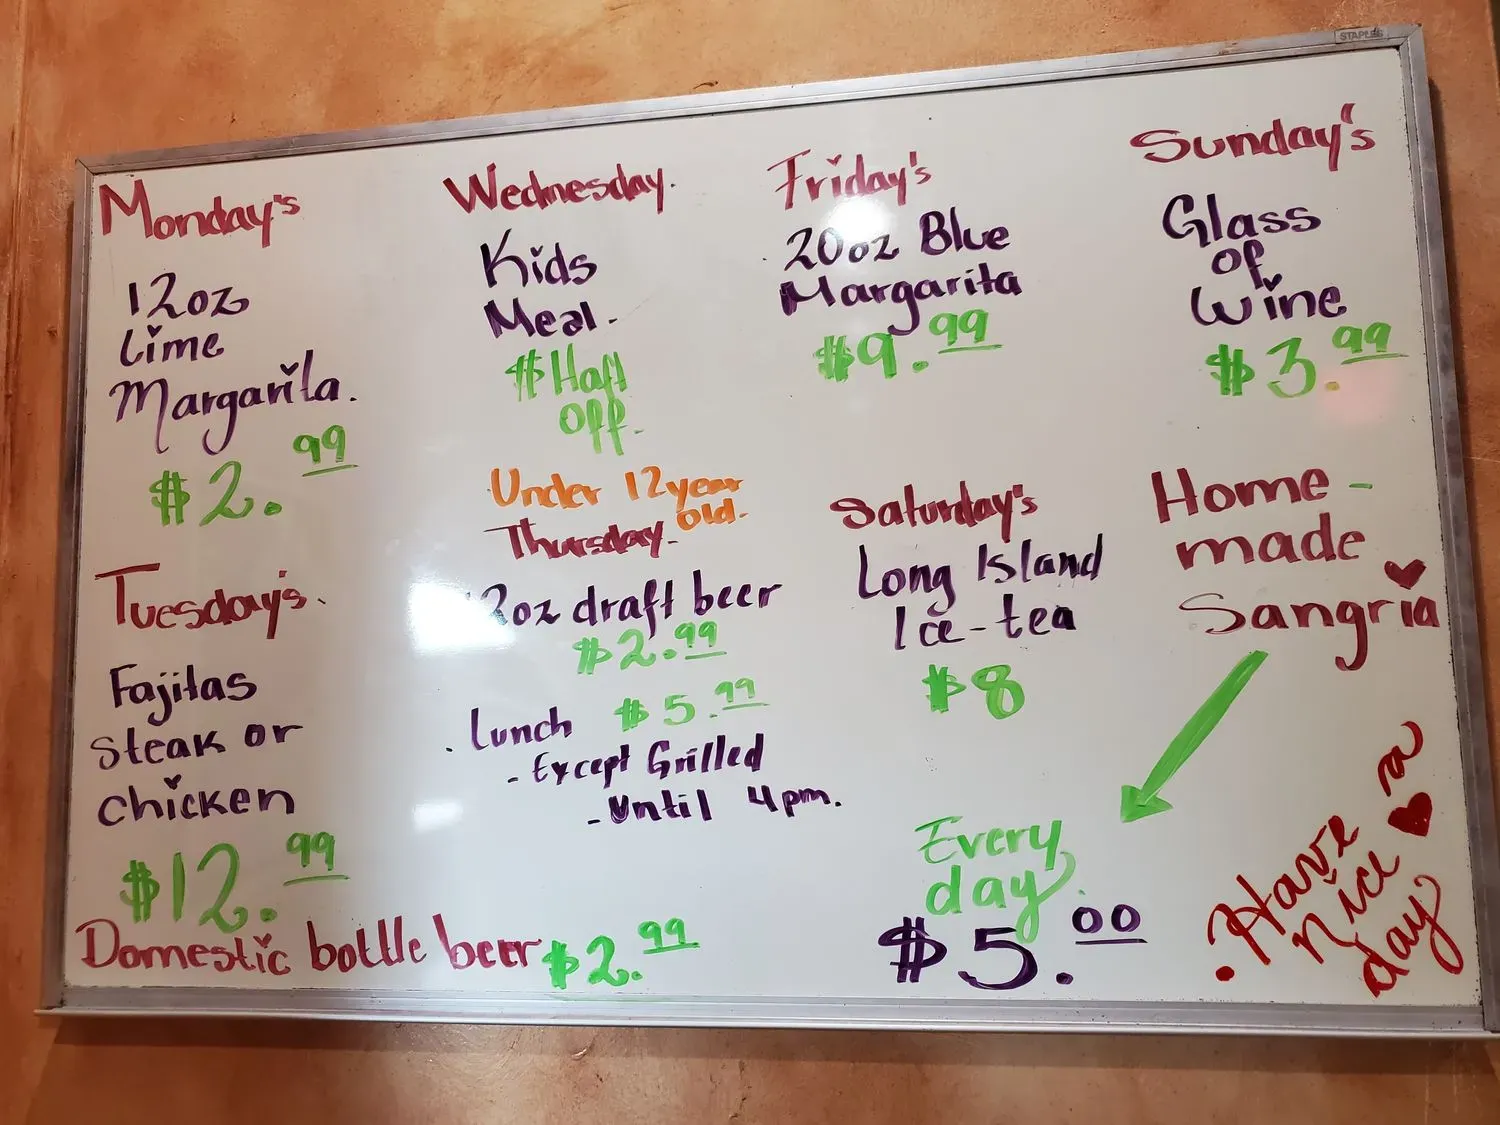 STAPLES
Monday's
12oz
Lime
Margarita.
$2.99
Tuesday's.
Fajitas
steak or
chicken
$12.99
Domestic bottle beer $2.99
Wednesday.
Kids
Meal.
$Haft
Off.
Under 12 year
old.
Thursday.
12oz draft beer
$2.99
. Lunch $5.99
- Except Grilled
- Until 4pm.
Friday's
20oz Blue
Margarita
$9.99
Saturday's
Long Island
Ice-tea
$8
Sunday's
Glass
of
Wine
$3.99
Home-
made
Sangria
Every
day.
$5.00
. Have a
nice
day